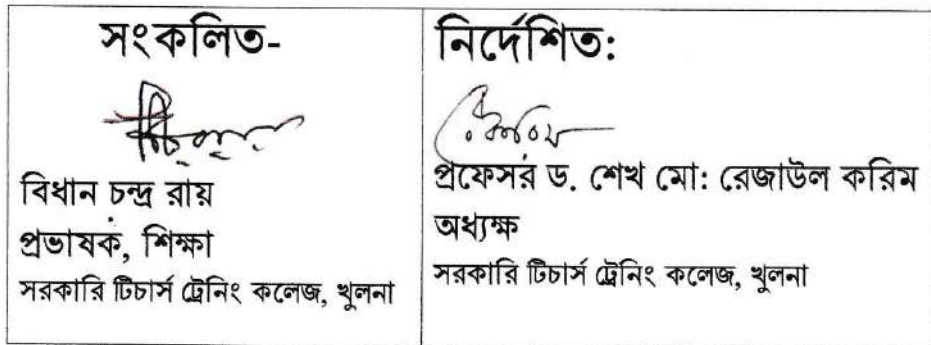 সংকলিত-
বিধান চন্দ্র রায়
প্রভাষক, শিক্ষা
সরকারি টিচার্স ট্রেনিং কলেজ, খুলনা
নির্দেশিত:
প্রফেসর ড. শেখ মো: রেজাউল করিম
অধ্যক্ষ
সরকারি টিচার্স ট্রেনিং কলেজ, খুলনা